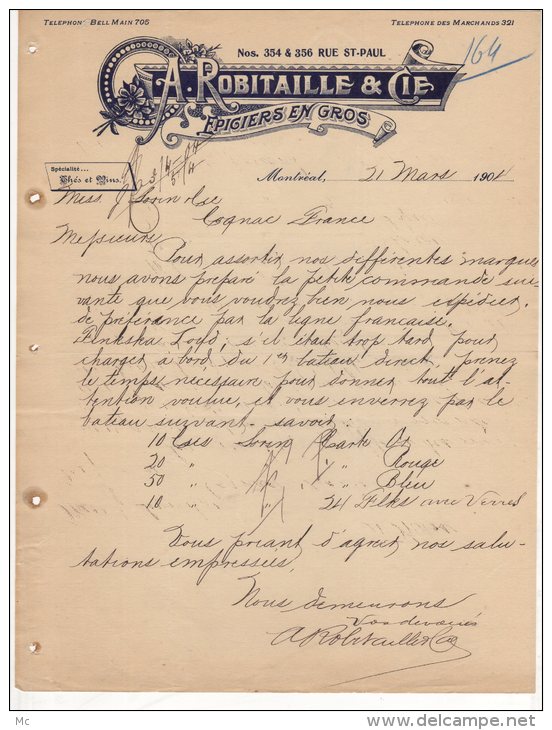 TELEPHON' BELL MAIN 705
TELEPHONE DES MARCHANDS 321
NOS. 354 & 356 RUE ST-PAUL
164
A. ROBITAILLE & CIE
EPICIERS EN GROS
Spécialité...
Thés et Vins.
Montréal, 21 Mars 1904
Mess. J. Sorin & Cie
Cognac France
Messieurs
Pour assortir nos différentes marques
nous avons préparé la petite commande sui-
vante que vous voudrez bien nous expédier,
de préférence par la ligne française.
s'il était trop tard pour
charger à bord du 1er bateau direct, prenez
le temps nécessaire pour donner tout l'at-
tention voulue, et vous enverrez par le
bateau suivant. savoir:
10 Cses Sorin Carte Or
20 " " Rouge
50 " " Bleu
10 " 24 Flks avec Verres
Vous priant d'agréer nos salu-
tations empressées,
Nous demeurons
Vos dévoués
A Robitaille & Cie
Mc
www.delcampe.net